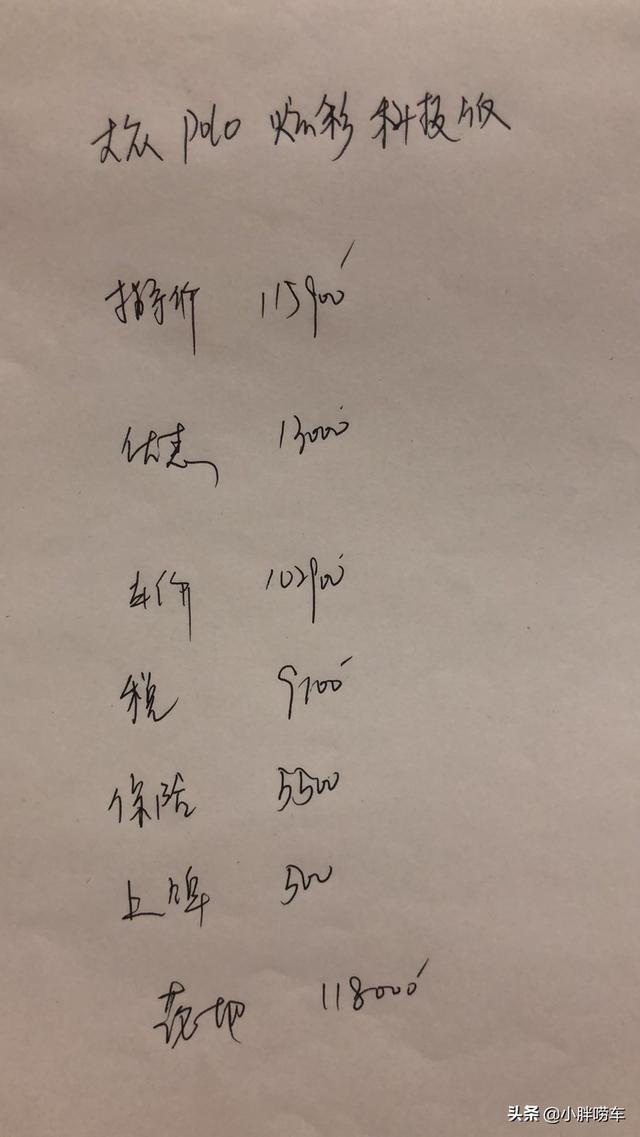 大众 polo 炫彩科技版
指导价 115900
优惠 13000
车价 102900
税 9100
保险 5500
上牌 500
落地 118000
头条 @小胖唠车